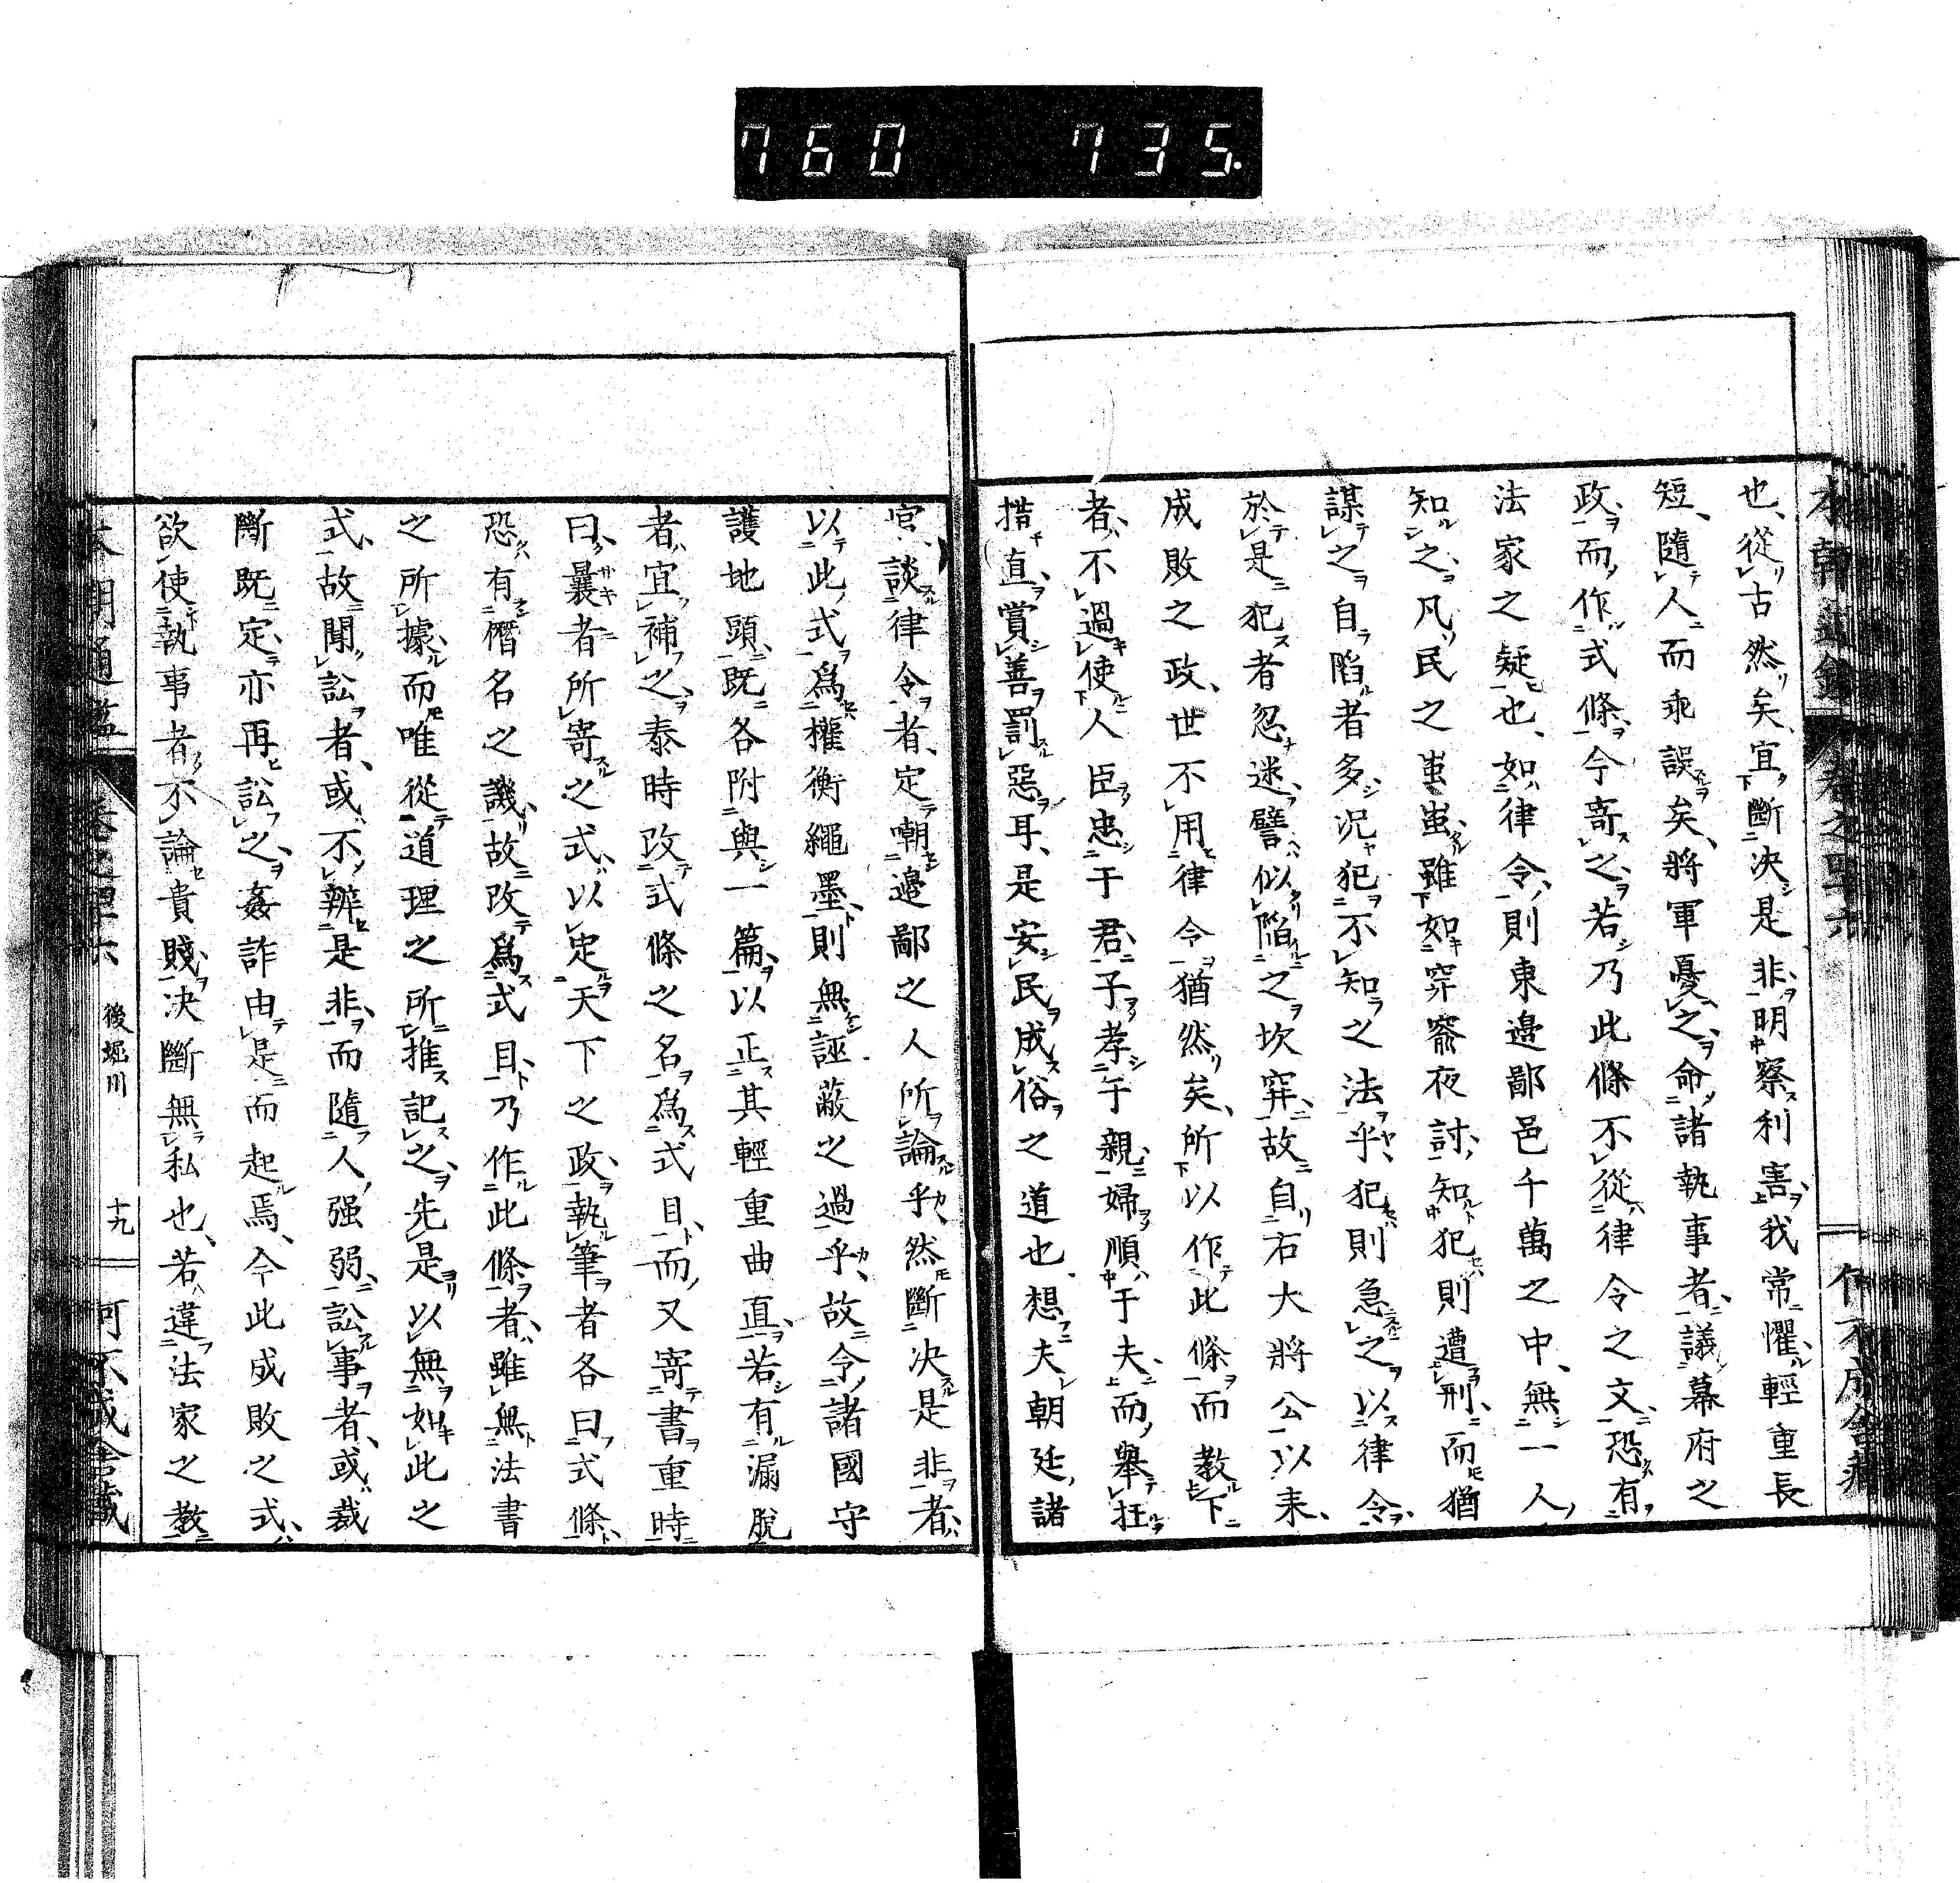 760 735.
也、從古然矣、宜斷决是非、明察利害、我常懼、輕重長
短、隨人而乖誤矣、將軍憂之、命諸執事者、議幕府之
政、而作式條、今寄之、若乃此條不從律令之文、恐有
法家之疑也、如律令、則東邊鄙邑千萬之中、無一人
知之、凡民之蚩蚩雖如穽竊夜討、知犯則遭刑、而猶
謀之自陷者多、况犯不知之法乎、犯則急之以律令、
於是犯者忽迷、譬似陷之坎穽、故自右大將公以来、
成敗之政、世不用律令猶然矣、所以作此條而教下
者、不過使人臣忠于君、子孝于親、婦順于夫、而擧枉
措直、賞善罰惡耳、是安民成俗之道也、想夫朝廷諸
官、談律令者、定嘲邊鄙之人所論乎、然斷决是非者、
以此式爲權衡繩墨、則無誣蔽之過乎、故令諸國守
護地頭、既各附與一篇、以正其輕重曲直、若有漏脫
者、宜補之、泰時改式條之名爲式目、而又寄書重時
曰、曩者所寄之式、以定天下之政、執筆者各曰式條、
恐有僭名之譏、故改爲式目、乃作此條者、雖無法書
之所據、而唯從道理之所推記之、先是以無如此之
式、故聞訟者、或不辨是非、而隨人强弱、訟事者、或裁
斷既定、亦再訟之、姦詐由是而起焉、今此成敗之式、
欲使執事者不論貴賤、决斷無私也、若違法家之教
本朝通鑑 卷之四十六 後堀川 十九